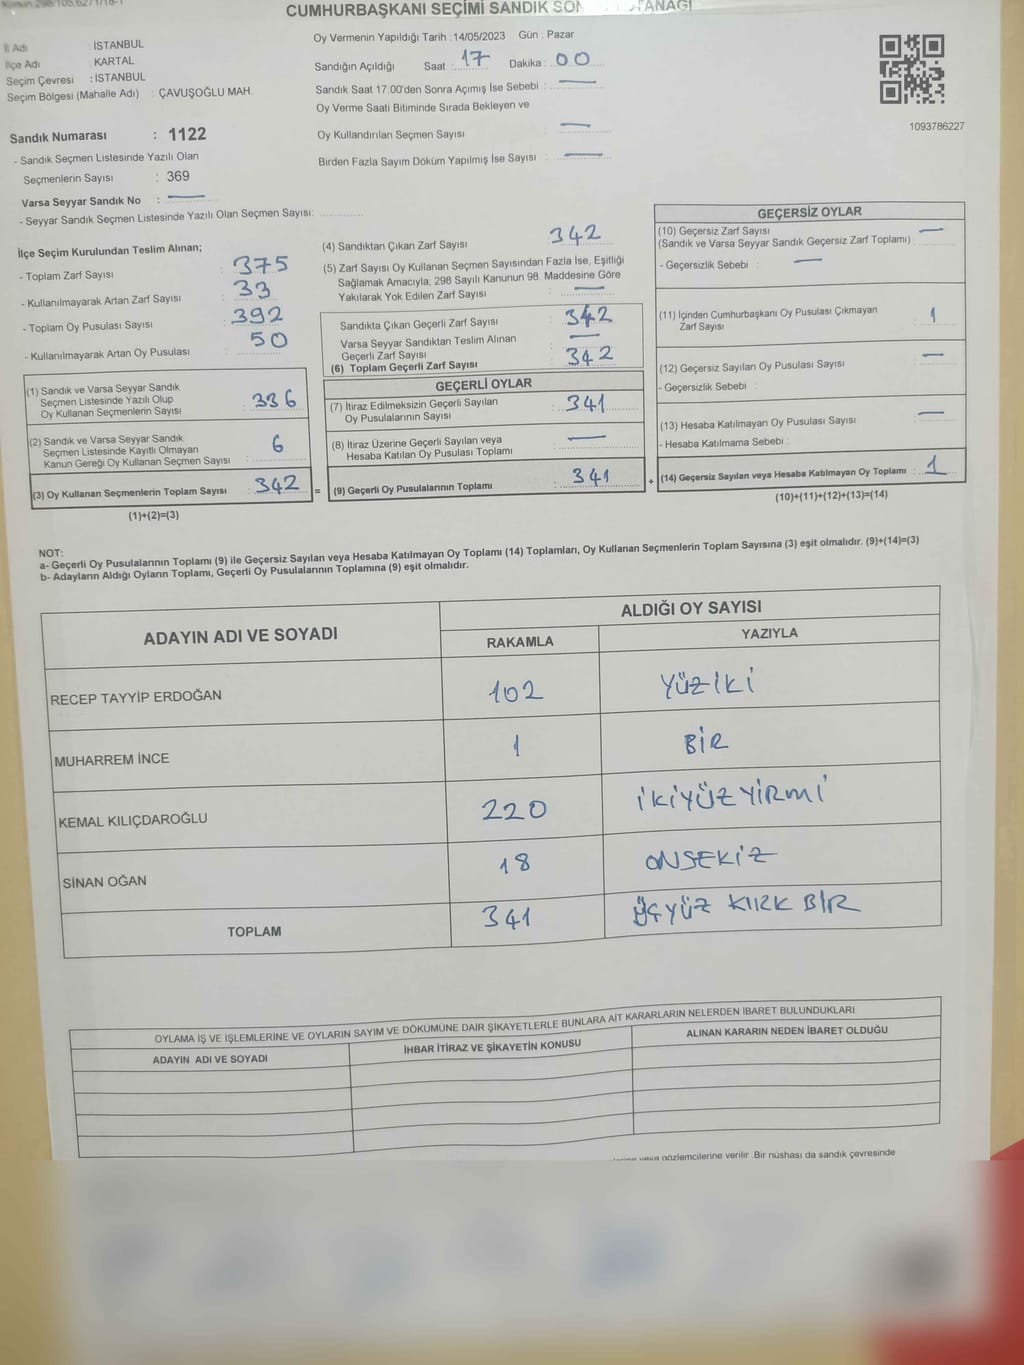 CUMHURBAŞKANI SEÇİMİ SANDIK
İl Adı : İSTANBUL
İlçe Adı : KARTAL
Seçim Çevresi : İSTANBUL
Seçim Bölgesi (Mahalle Adı) : ÇAVUŞOĞLU MAH.
Sandık Numarası : 1122
- Sandık Seçmen Listesinde Yazılı Olan
Seçmenlerin Sayısı : 369
Varsa Seyyar Sandık No : —
- Seyyar Sandık Seçmen Listesinde Yazılı Olan Seçmen Sayısı:
Oy Vermenin Yapıldığı Tarih : 14/05/2023 Gün : Pazar
Sandığın Açıldığı Saat : 17 Dakika : 00
Sandık Saat 17.00'den Sonra Açımış İse Sebebi : —
Oy Verme Saati Bitiminde Sırada Bekleyen ve
Oy Kullandırılan Seçmen Sayısı : —
Birden Fazla Sayım Döküm Yapılmış İse Sayısı : —
1093786227
İlçe Seçim Kurulundan Teslim Alınan;
- Toplam Zarf Sayısı : 375
- Kullanılmayarak Artan Zarf Sayısı : 33
- Toplam Oy Pusulası Sayısı : 392
- Kullanılmayarak Artan Oy Pusulası : 50
(1) Sandık ve Varsa Seyyar Sandık
Seçmen Listesinde Yazılı Olup
Oy Kullanan Seçmenlerin Sayısı : 336
(2) Sandık ve Varsa Seyyar Sandık
Seçmen Listesinde Kayıtlı Olmayan
Kanun Gereği Oy Kullanan Seçmen Sayısı : 6
(3) Oy Kullanan Seçmenlerin Toplam Sayısı : 342
(1)+(2)=(3)
=
(4) Sandıktan Çıkan Zarf Sayısı : 342
(5) Zarf Sayısı Oy Kullanan Seçmen Sayısından Fazla İse, Eşitliği
Sağlamak Amacıyla; 298 Sayılı Kanunun 98. Maddesine Göre
Yakılarak Yok Edilen Zarf Sayısı : —
Sandıkta Çıkan Geçerli Zarf Sayısı : 342
Varsa Seyyar Sandıktan Teslim Alınan
Geçerli Zarf Sayısı : —
(6) Toplam Geçerli Zarf Sayısı : 342
GEÇERLİ OYLAR
(7) İtiraz Edilmeksizin Geçerli Sayılan
Oy Pusulalarının Sayısı : 341
(8) İtiraz Üzerine Geçerli Sayılan veya
Hesaba Katılan Oy Pusulası Toplamı : —
(9) Geçerli Oy Pusulalarının Toplamı : 341
+
GEÇERSİZ OYLAR
(10) Geçersiz Zarf Sayısı : —
(Sandık ve Varsa Seyyar Sandık Geçersiz Zarf Toplamı)
- Geçersizlik Sebebi : —
(11) İçinden Cumhurbaşkanı Oy Pusulası Çıkmayan
Zarf Sayısı : 1
(12) Geçersiz Sayılan Oy Pusulası Sayısı : —
- Geçersizlik Sebebi :
(13) Hesaba Katılmayan Oy Pusulası Sayısı : —
- Hesaba Katılmama Sebebi :
(14) Geçersiz Sayılan veya Hesaba Katılmayan Oy Toplamı : 1
(10)+(11)+(12)+(13)=(14)
NOT:
a- Geçerli Oy Pusulalarının Toplamı (9) ile Geçersiz Sayılan veya Hesaba Katılmayan Oy Toplamı (14) Toplamları, Oy Kullanan Seçmenlerin Toplam Sayısına (3) eşit olmalıdır. (9)+(14)=(3)
b- Adayların Aldığı Oyların Toplamı, Geçerli Oy Pusulalarının Toplamına (9) eşit olmalıdır.
ADAYIN ADI VE SOYADI
ALDIĞI OY SAYISI
RAKAMLA YAZIYLA
RECEP TAYYİP ERDOĞAN 102 YÜZİKİ
MUHARREM İNCE 1 BİR
KEMAL KILIÇDAROĞLU 220 İKİYÜZYİRMİ
SİNAN OĞAN 18 ONSEKİZ
TOPLAM 341 ÜÇYÜZ KIRK BİR
OYLAMA İŞ VE İŞLEMLERİNE VE OYLARIN SAYIM VE DÖKÜMÜNE DAİR ŞİKAYETLERLE BUNLARA AİT KARARLARIN NELERDEN İBARET BULUNDUKLARI
ADAYIN ADI VE SOYADI İHBAR İTİRAZ VE ŞİKAYETİN KONUSU ALINAN KARARIN NEDEN İBARET OLDUĞU
veya gözlemcilerine verilir .Bir nüshası da sandık çevresinde